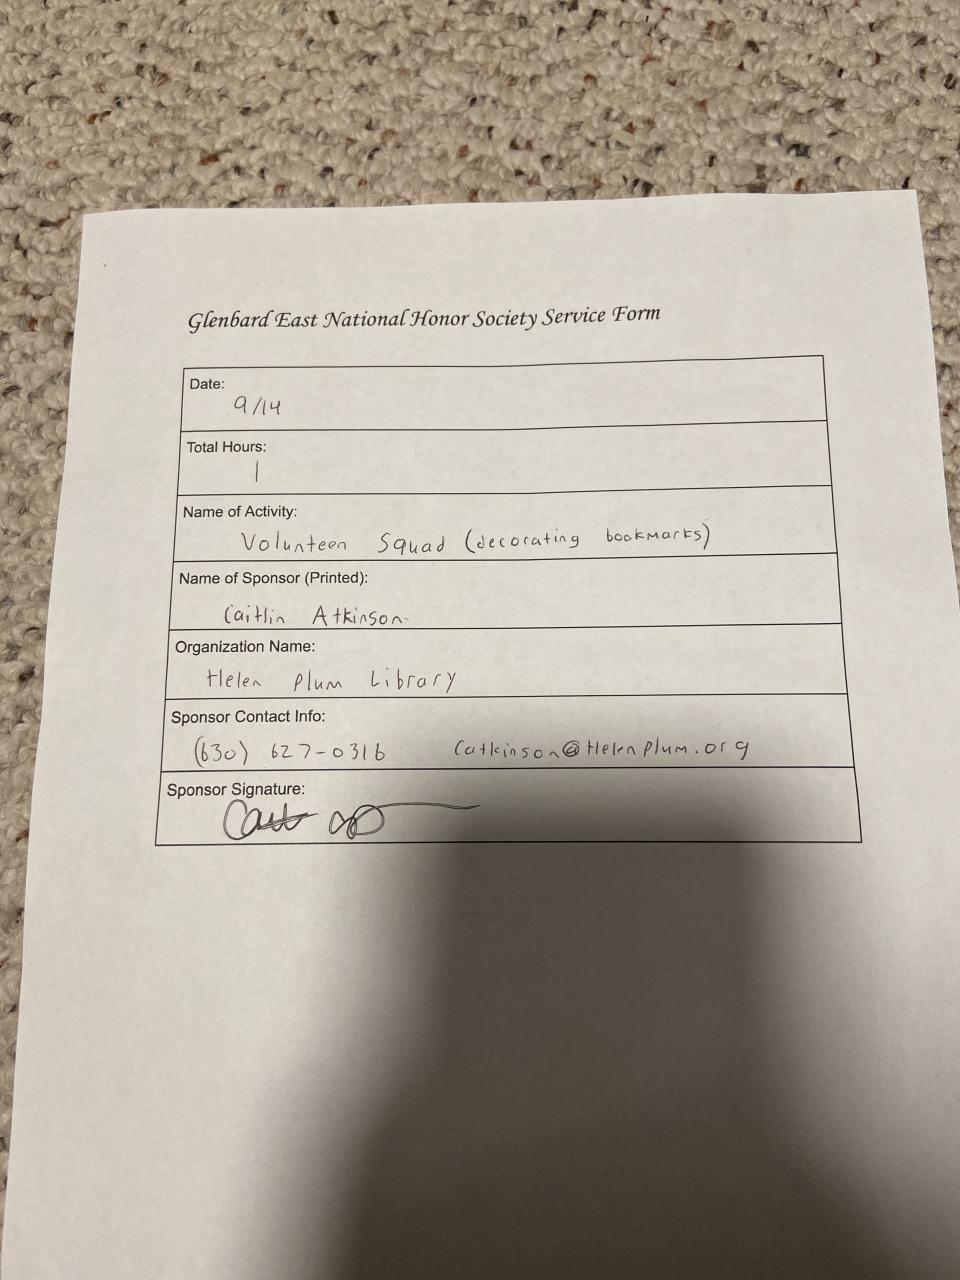 Glenbard East National Honor Society Service Form
Date:
9/14
Total Hours:
1
Name of Activity:
Volunteen Squad (decorating bookmarks)
Name of Sponsor (Printed):
Caitlin Atkinson
Organization Name:
Helen Plum Library
Sponsor Contact Info:
(630) 627-0316 Catkinson@Helenplum.org
Sponsor Signature: